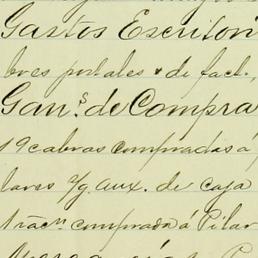 Gastos Escritori
bres postales & de fact.
Gan.s de Compra
19 cabras compradas á
lares s/g. aux. de caja
1 rac.n comprada á Pilar